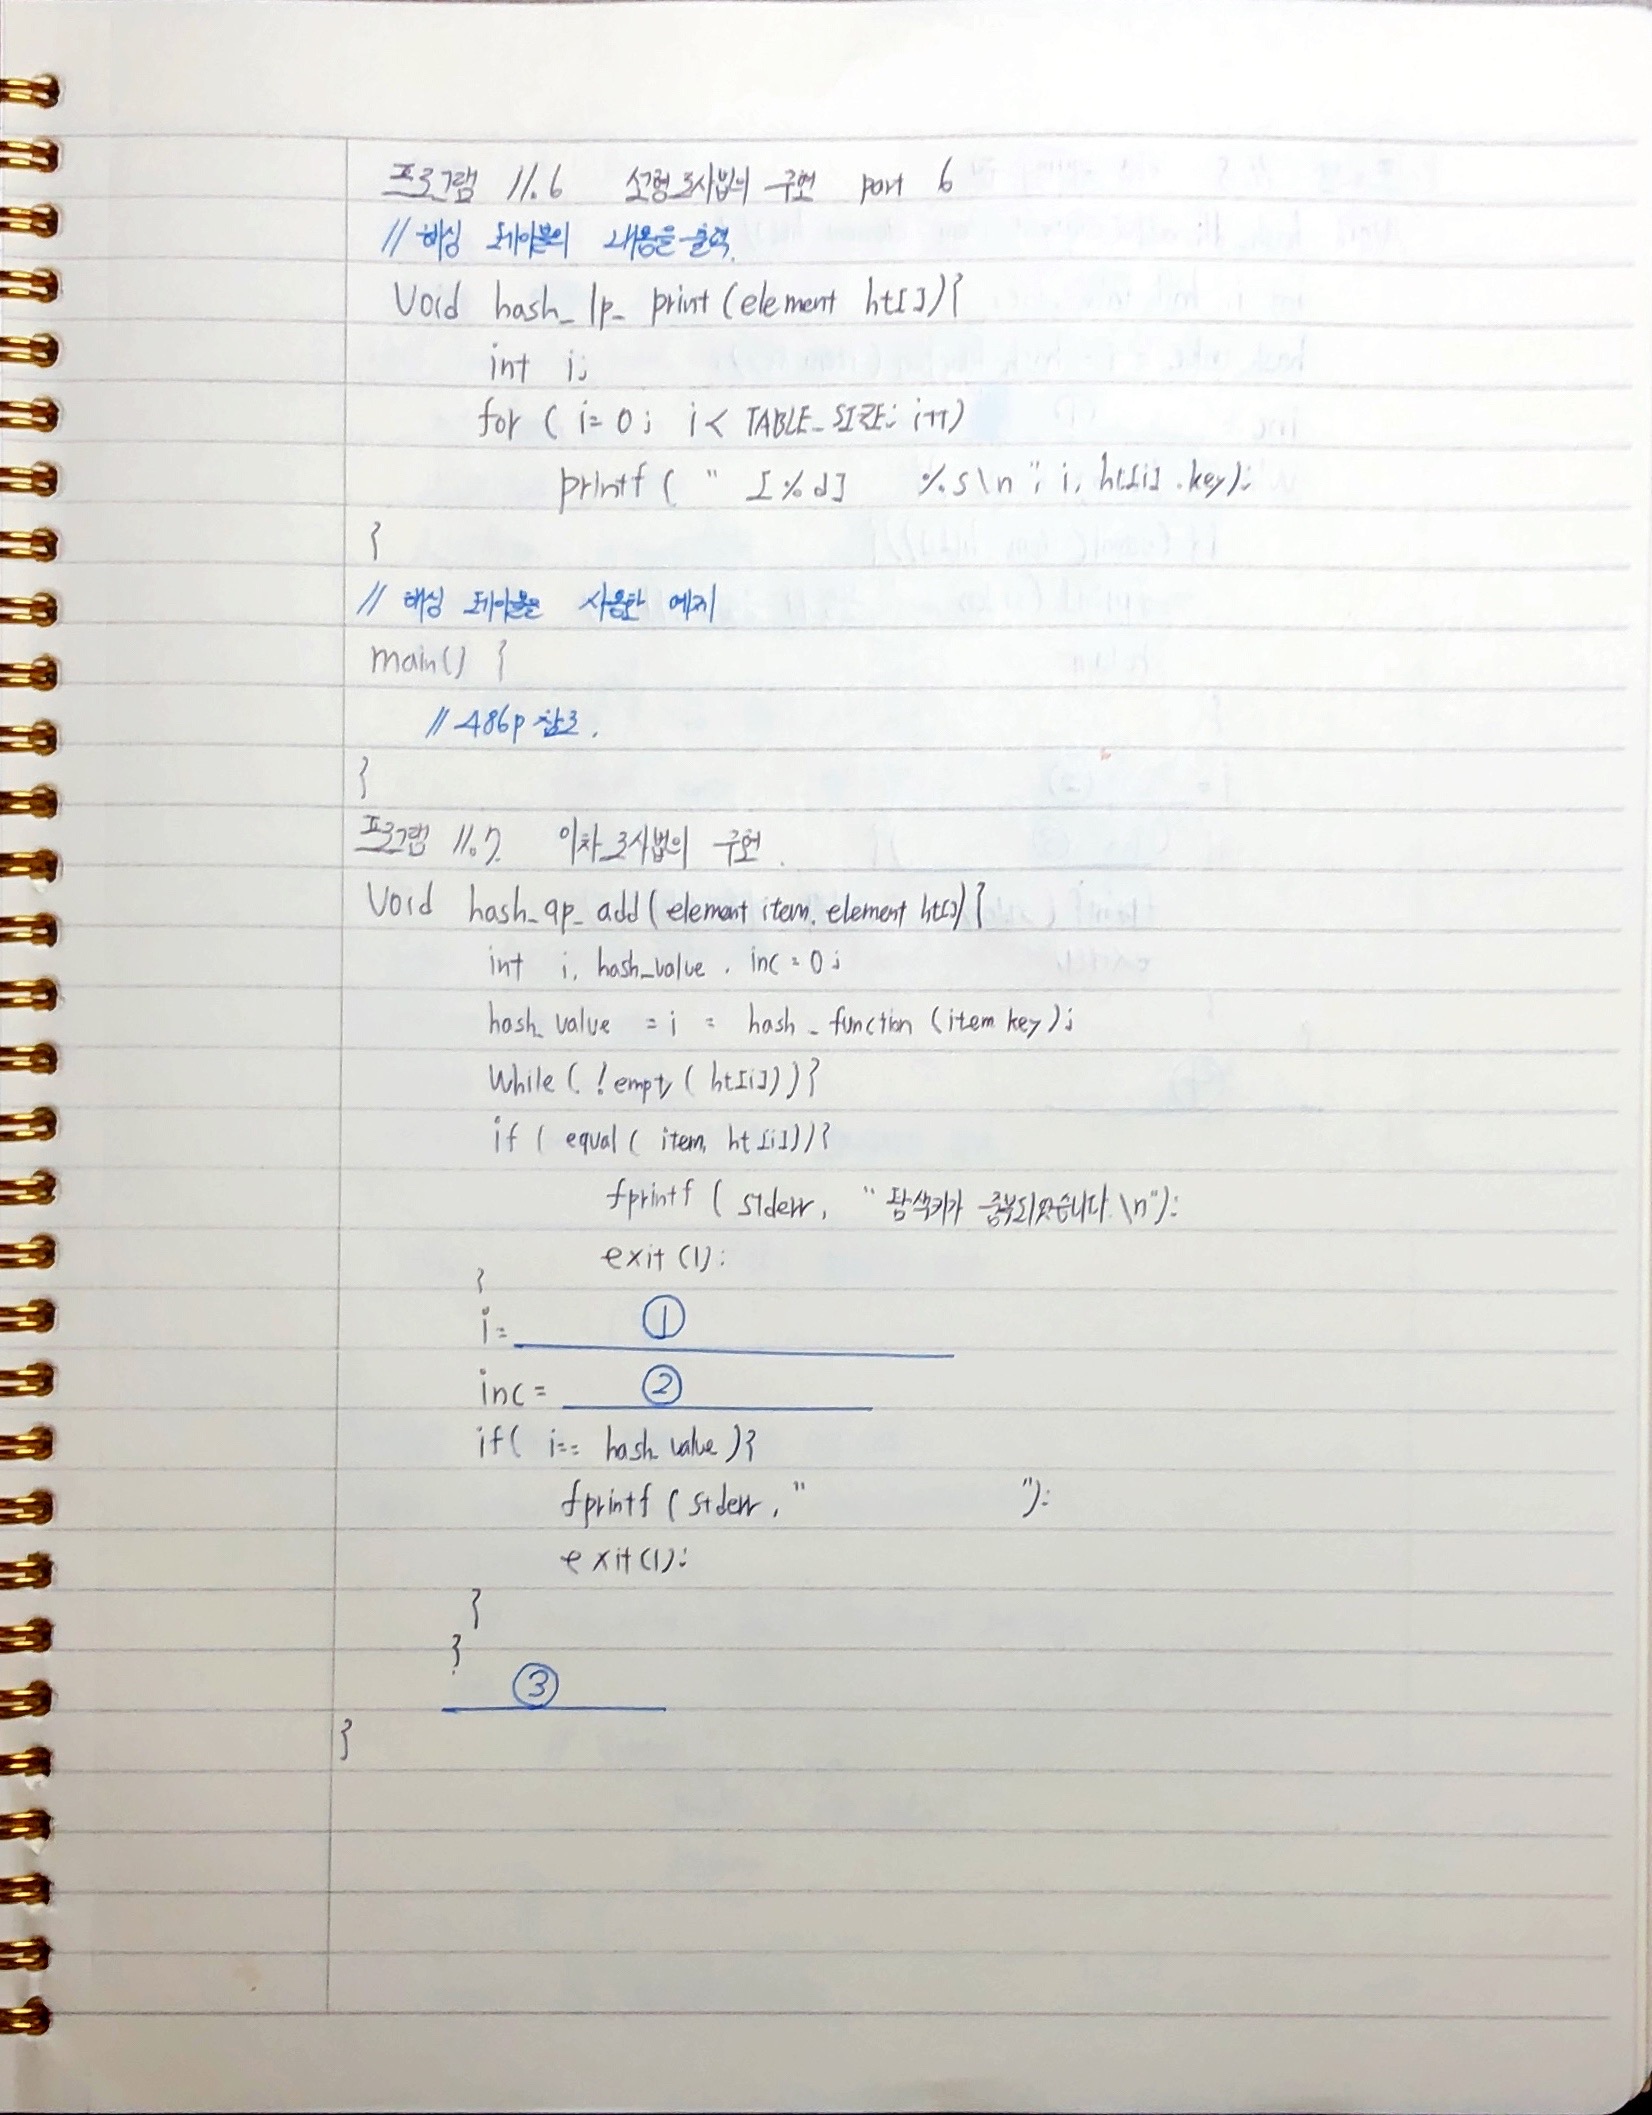 프로그램 11.6 선형조사법의 구현 part 6
// 해싱 테이블의 내용을 출력.
Void hash_lp_print(element ht[]){
int i;
for ( i= 0; i < TABLE_SIZE; i++)
printf( " [%d] %s\n", i, ht[i].key);
}
// 해싱 테이블을 사용한 예제
main() {
// 486p 참조.
}
프로그램 11.7. 이차조사법의 구현.
Void hash_qp_add(element item, element ht[]){
int i, hash_value, inc = 0;
hash_value = i = hash_function (item key);
While( !empty( ht[i])){
if ( equal( item, ht[i])){
fprintf ( stderr, " 탐색키가 중복되었습니다.\n");
exit (1);
}
i= ①
inc = ②
if( i== hash_value ){
fprintf ( stderr, " ");
exit(1);
}
}
③
}